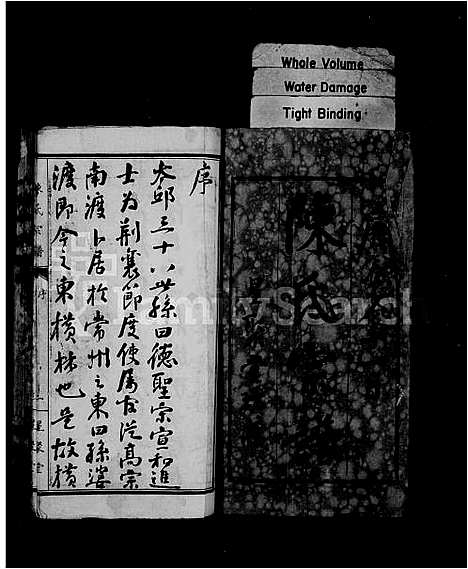 Whole Volume
Water Damage
Tight Binding
陳氏宗譜
序
太邱三十八世孫曰德聖宗宣和進
士為荆襄節度使居官從髙宗
南渡卜居於常州之東曰孫塘
渡即今之東橫林也是故橫
FamilySearch